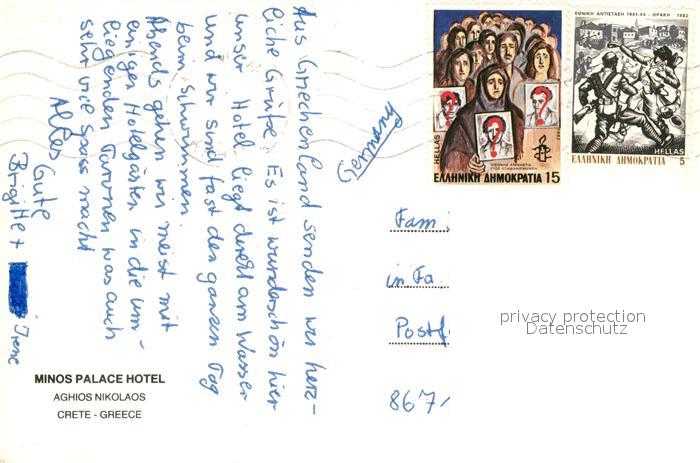 Aus Griechenland senden wir herz-
liche Grüße. Es ist wunderschön hier
unser Hotel liegt direkt am Wasser
und wir sind fast den ganzen Tag
beim Schwimmen.
Abends gehen wir meist mit
einigen Hotelgästen in die um-
liegenden Tavernen was auch
sehr viel Spass macht
Alles Gute
Brigitte +
Irene
MINOS PALACE HOTEL
AGHIOS NIKOLAOS
CRETE - GREECE
Germany
HELLAS
ΕΛΛΗΝΙΚΗ ΔΗΜΟΚΡΑΤΙΑ 15
ΕΘΝΙΚΗ ΑΝΤΙΣΤΑΣΗ 1941-44 - ΘΡΑΚΗ 1982
HELLAS
ΕΛΛΗΝΙΚΗ ΔΗΜΟΚΡΑΤΙΑ 5
Fam
in Fa.
Postf
867
privacy protection
Datenschutz